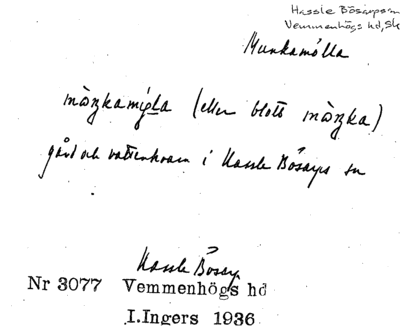 Hassle Bösarps sn
Vemmenhögs hd, Sk
Munkamölla
màṛŋkamig̀la (eller blott màṛŋka)
gård och vattenkvarn i Hassle Bösarps sn
Hassle Bösarp
Nr 3077 Vemmenhögs hd
I.Ingers 1936